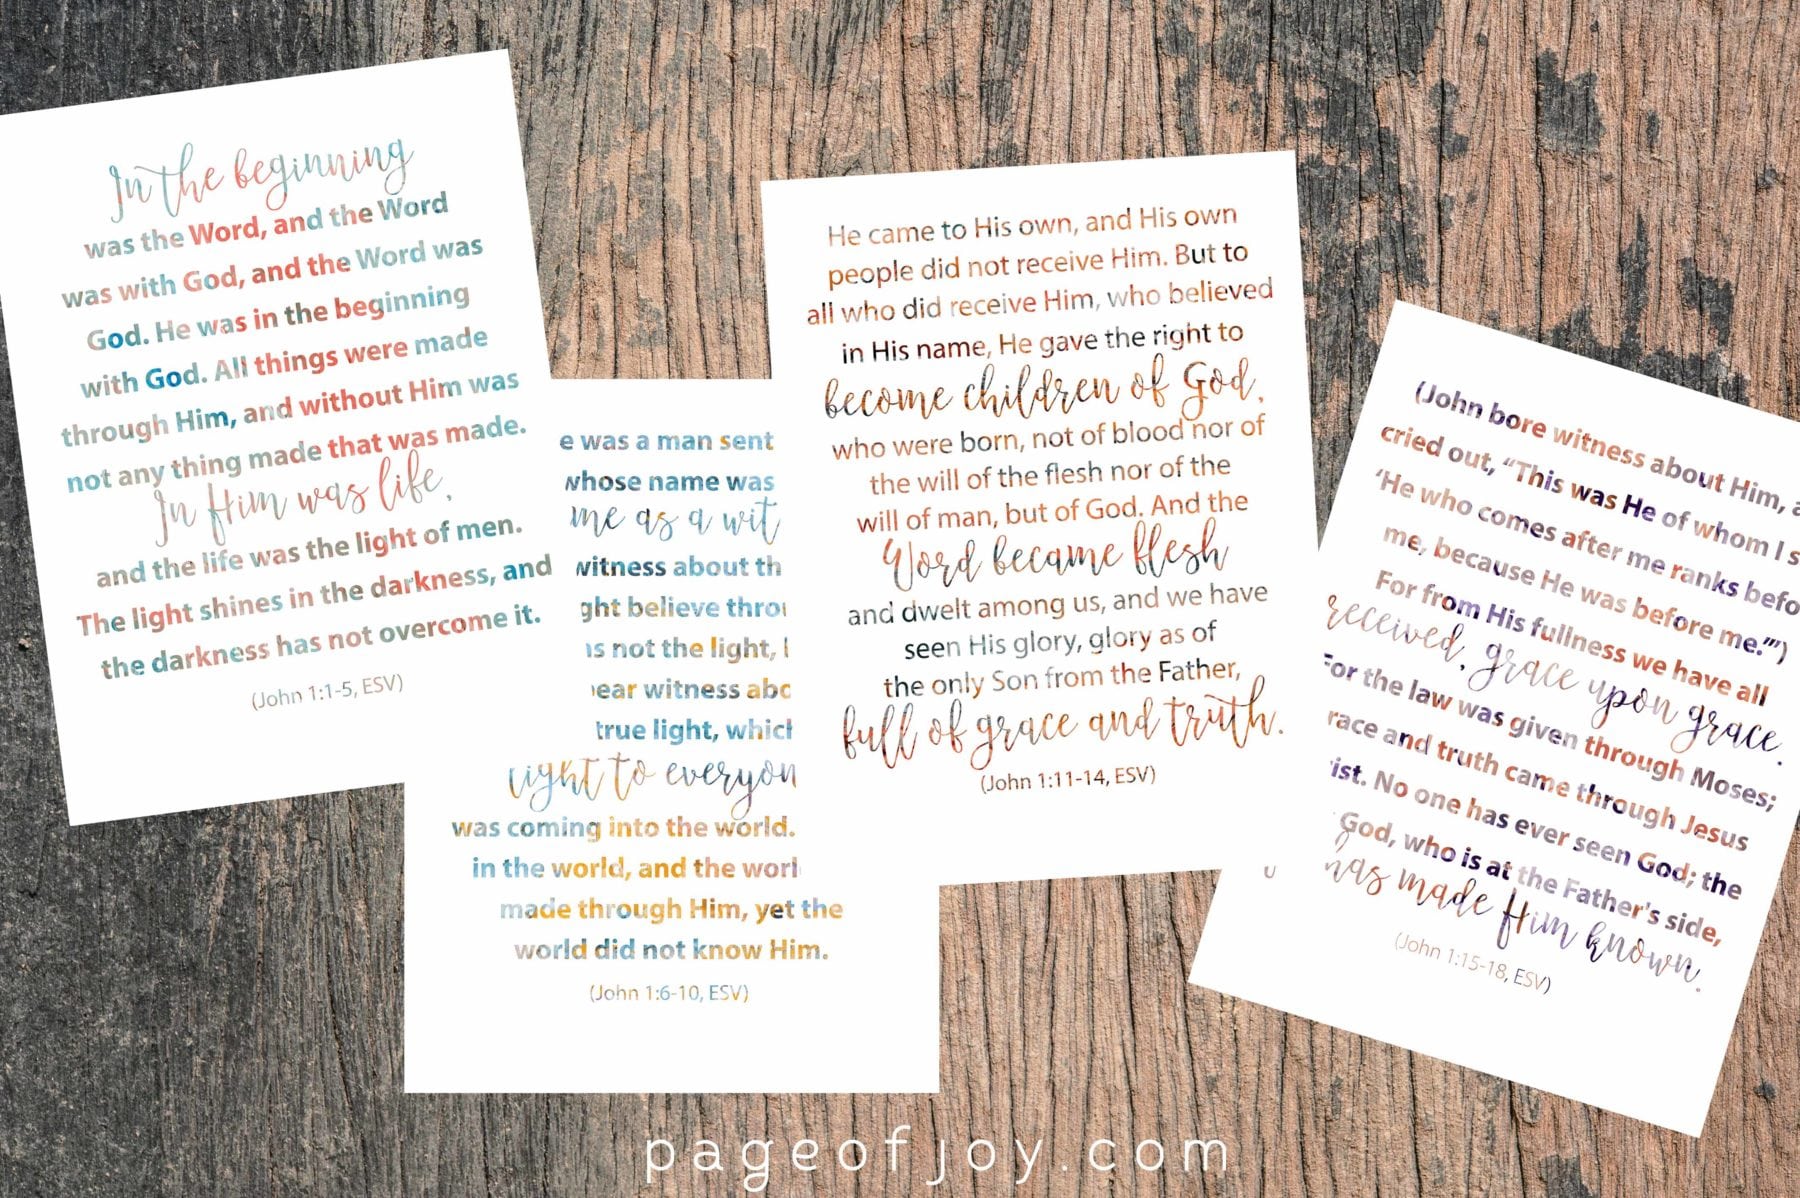 In the beginning
was the Word, and the Word
was with God, and the Word was
God. He was in the beginning
with God. All things were made
through Him, and without Him was
not any thing made that was made.
In Him was life,
and the life was the light of men.
The light shines in the darkness, and
the darkness has not overcome it.
(John 1:1-5, ESV)
e was a man sent
whose name was
me as a wit
witness about th
ght believe throu
as not the light, l
ear witness abo
true light, which
light to everyon
was coming into the world.
in the world, and the worl
made through Him, yet the
world did not know Him.
(John 1:6-10, ESV)
He came to His own, and His own
people did not receive Him. But to
all who did receive Him, who believed
in His name, He gave the right to
become children of God,
who were born, not of blood nor of
the will of the flesh nor of the
will of man, but of God. And the
Word became flesh
and dwelt among us, and we have
seen His glory, glory as of
the only Son from the Father,
full of grace and truth.
(John 1:11-14, ESV)
(John bore witness about Him, a
cried out, “This was He of whom I s
‘He who comes after me ranks befo
me, because He was before me.’”)
For from His fullness we have all
received, grace upon grace.
For the law was given through Moses;
race and truth came through Jesus
rist. No one has ever seen God; the
God, who is at the Father's side,
has made Him known.
(John 1:15-18, ESV)
pageofjoy.com